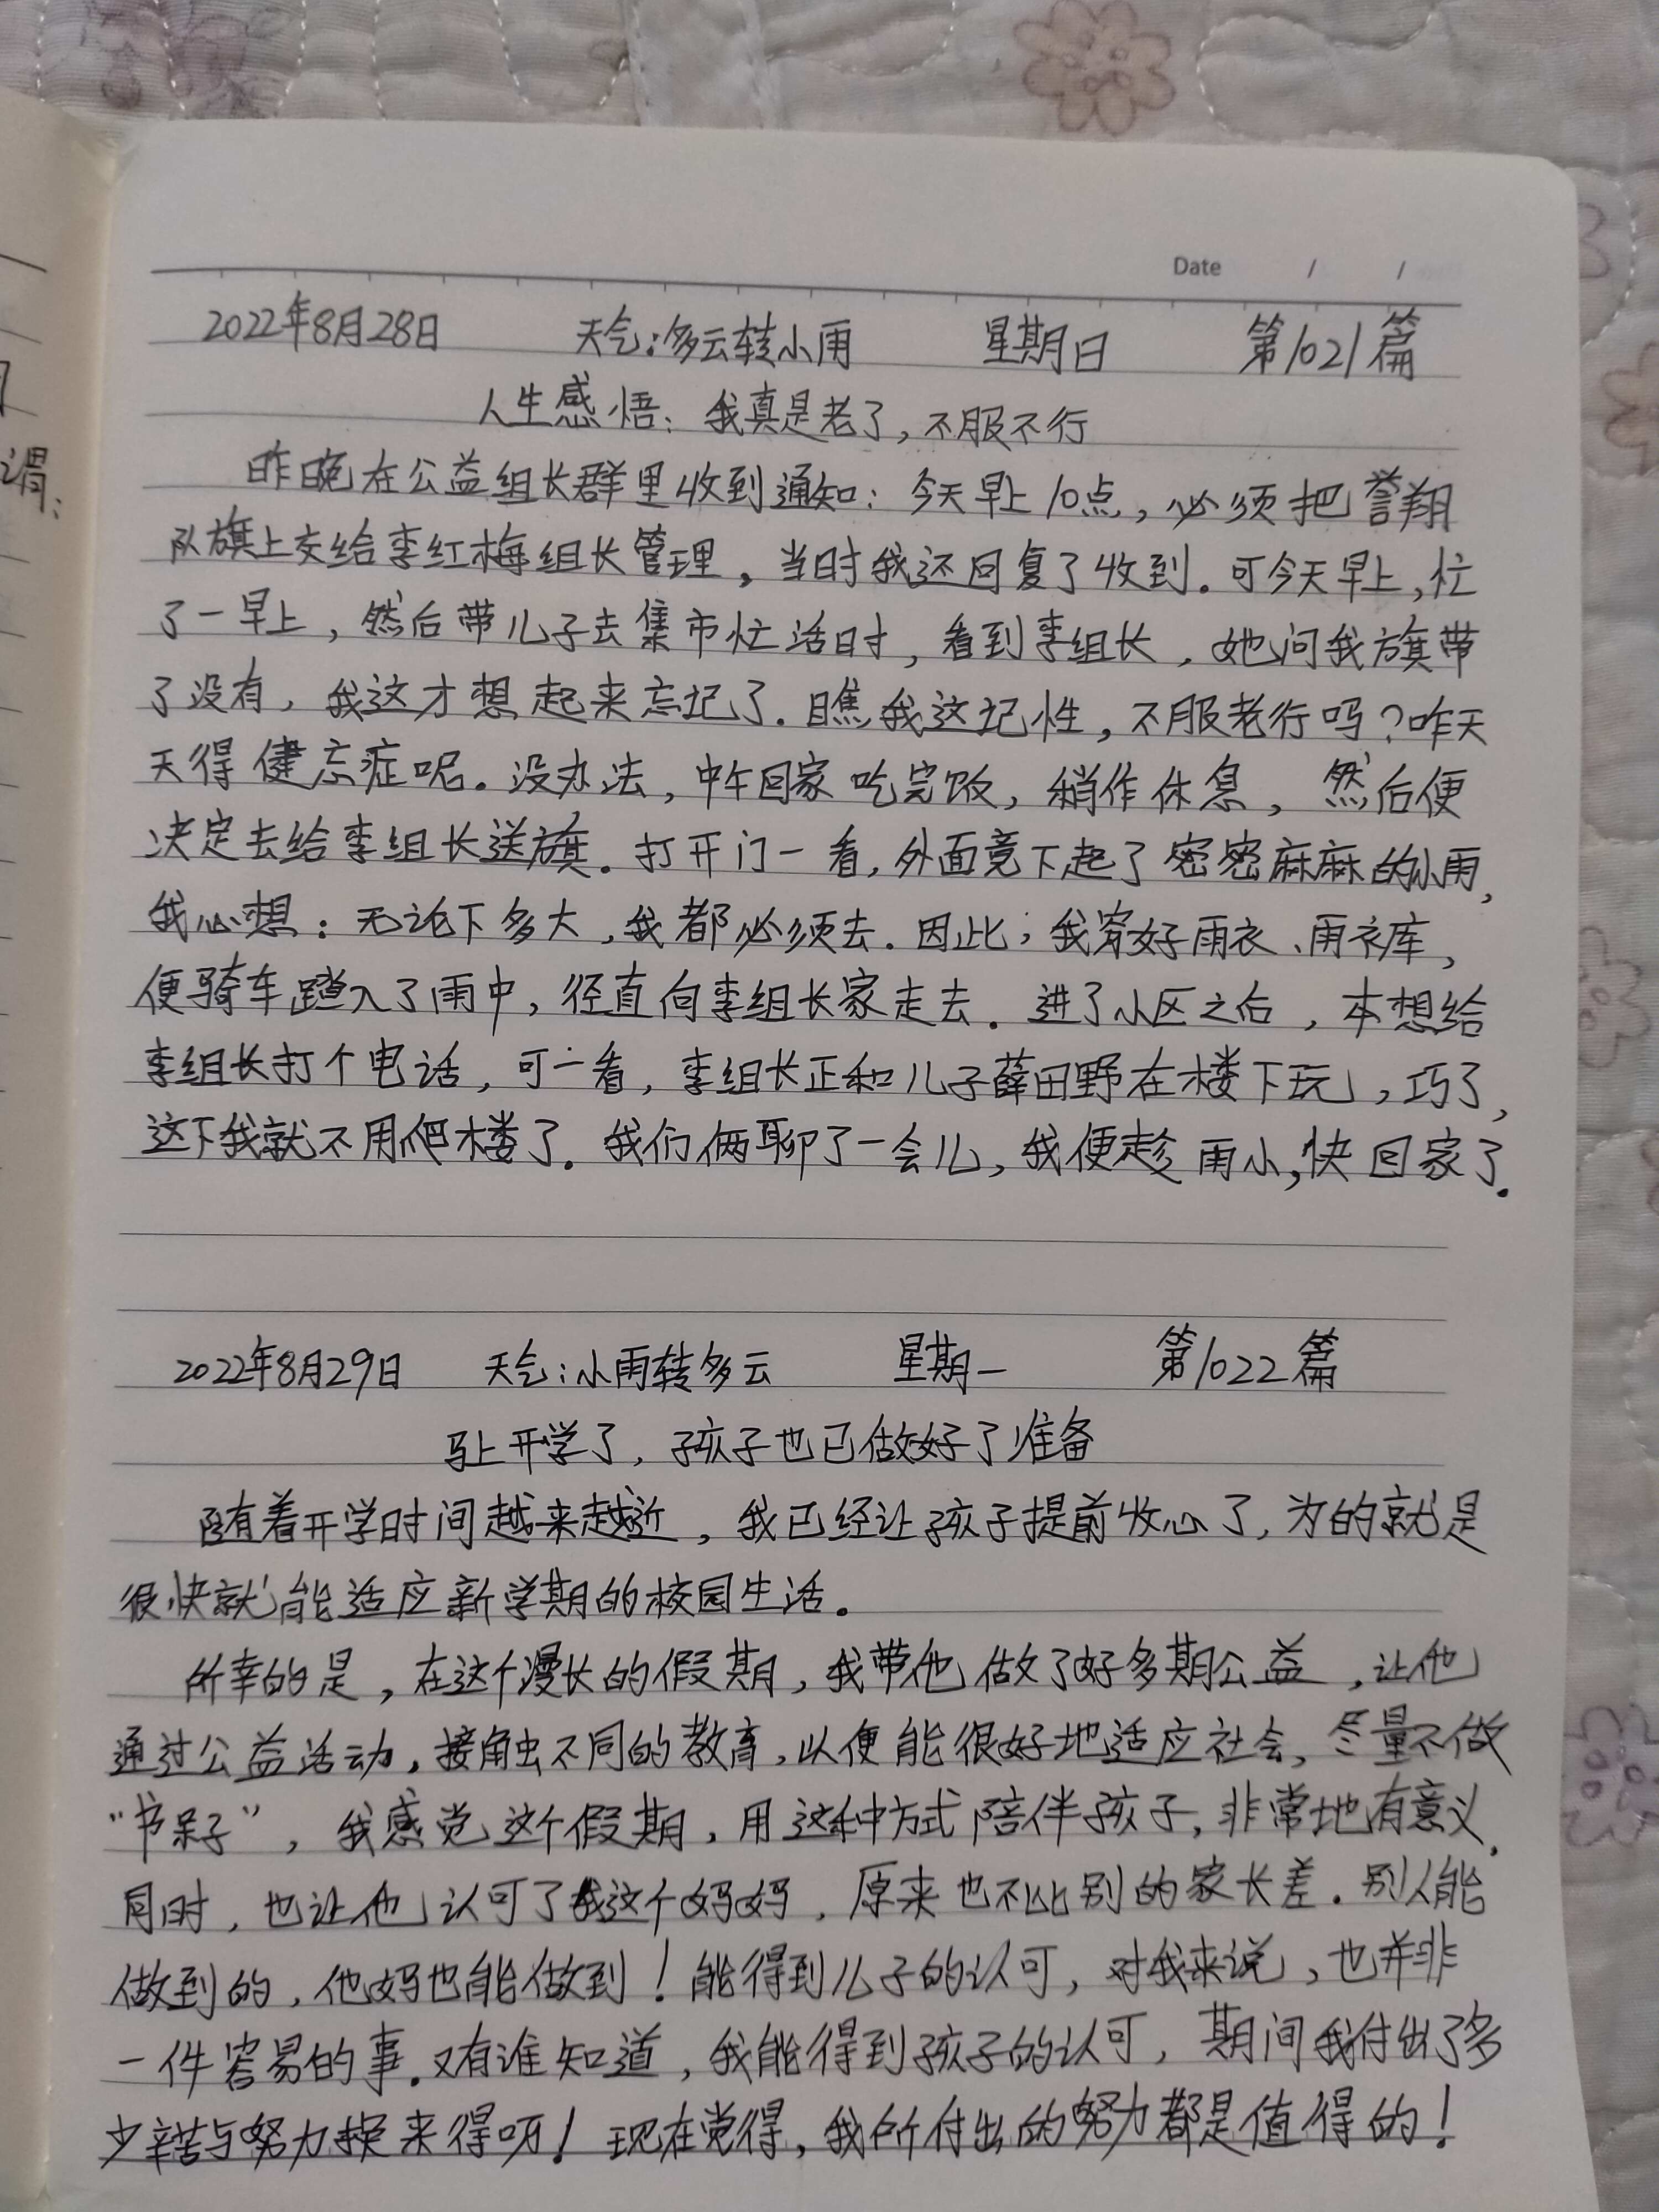 Date / /
2022年8月28日 天气:多云转小雨 星期日 第1021篇
人生感悟:我真是老了,不服不行
昨晚在公益组长群里收到通知:今天早上10点,必须把誉翔
队旗上交给李红梅组长管理,当时我还回复了收到.可今天早上,忙
了一早上,然后带儿子去集市忙活时,看到李组长,她问我旗带
了没有,我这才想起来忘记了.瞧我这记性,不服老行吗?咋天
天得健忘症呢.没办法,中午回家吃完饭,稍作休息,然后便
决定去给李组长送旗.打开门一看,外面竟下起了密密麻麻的小雨,
我心想:无论下多大,我都必须去.因此,我穿好雨衣、雨衣库,
便骑车踏入了雨中,径直向李组长家走去.进了小区之后,本想给
李组长打个电话,可一看,李组长正和儿子薛田野在楼下玩,巧了,
这下我就不用爬楼了.我们俩聊了一会儿,我便趁雨小,快回家了.
2022年8月29日 天气:小雨转多云 星期一 第1022篇
马上开学了,孩子也已做好了准备
随着开学时间越来越近,我已经让孩子提前收心了,为的就是
很快就能适应新学期的校园生活.
所幸的是,在这个漫长的假期,我带他做了好多期公益,让他
通过公益活动,接触不同的教育,以便能很好地适应社会,尽量不做
“书呆子”,我感觉这个假期,用这种方式陪伴孩子,非常地有意义.
同时,也让他认可了我这个妈妈,原来也不比别的家长差.别人能
做到的,他妈也能做到!能得到儿子的认可,对我来说,也并非
一件容易的事.又有谁知道,我能得到孩子的认可,期间我付出了多
少辛苦与努力换来得呀!现在觉得,我所付出的努力都是值得的!
谓: